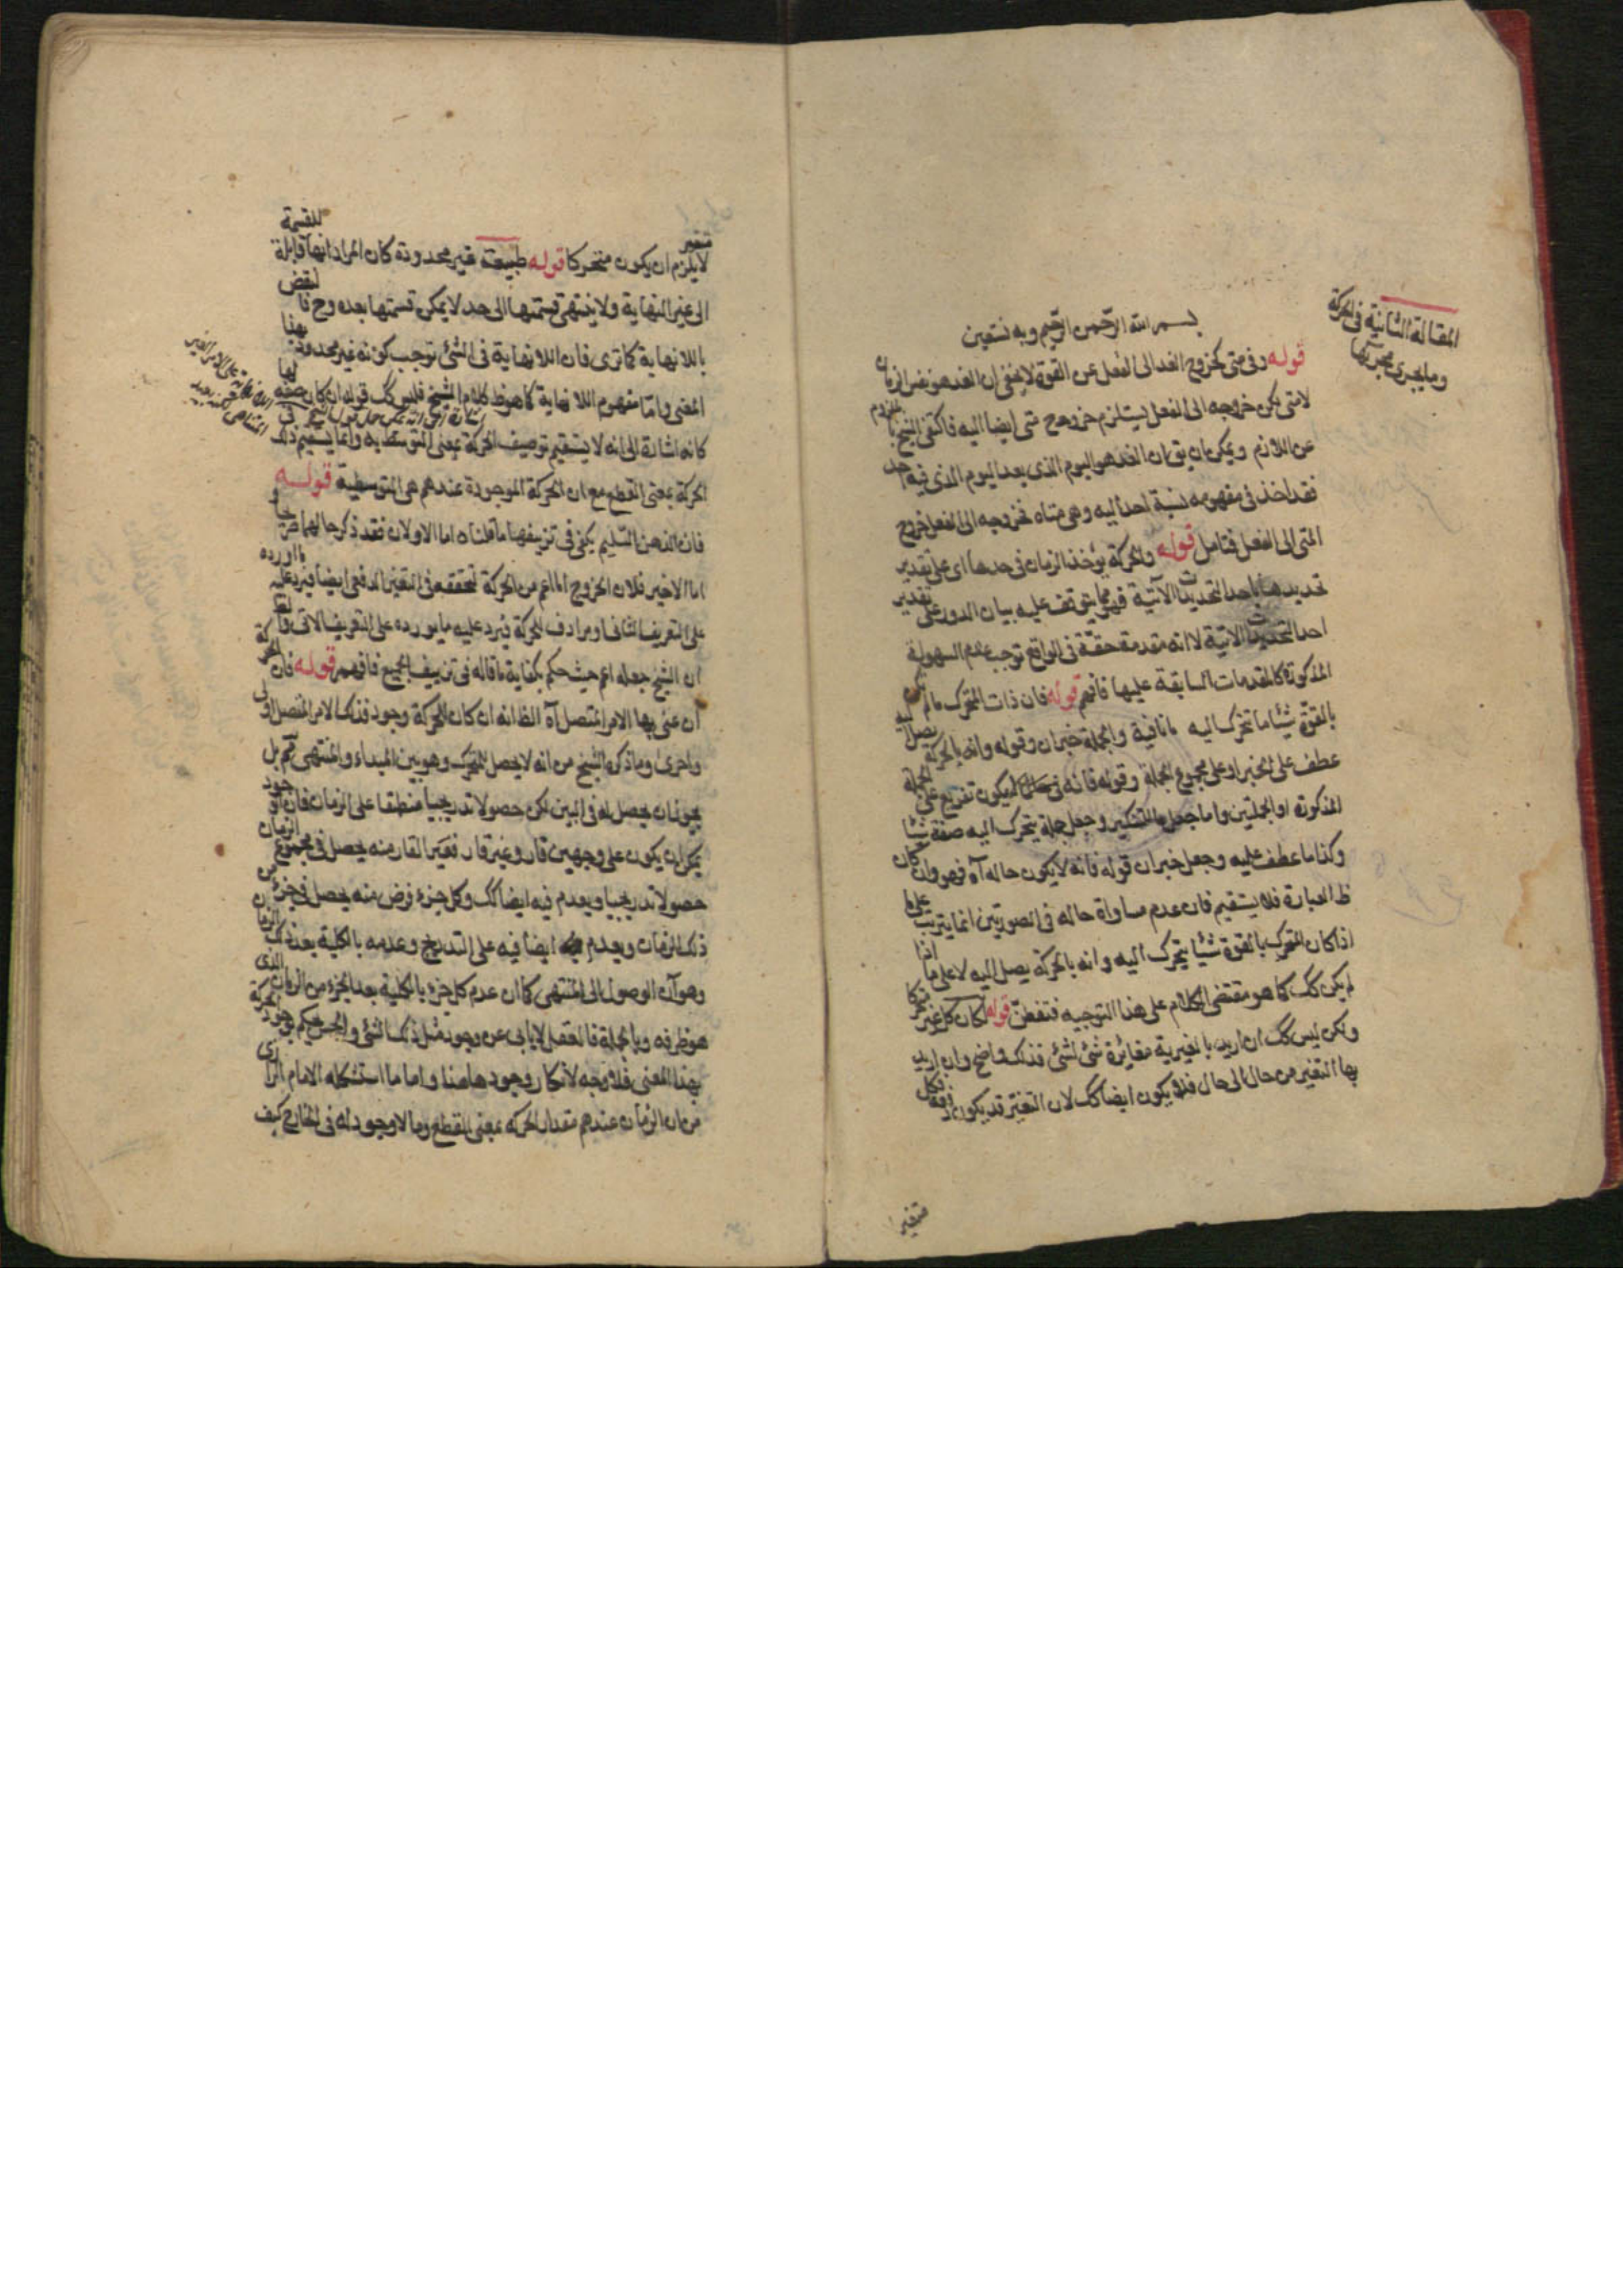 المقالة الثانية في الحركة
وما يجري مجريها
بسم الله الرحمن الرحيم وبه نستعين
قوله وفي متى كخروج الغد الى الفعل عن القوة لا يخفى ان الغد هو نفس الزمان
لا متى لكن خروجه الى الفعل يستلزم خروج متى ايضا اليه فاكتفى الشيخ بالملزوم
عن اللازم ويمكن ان يق ان الغد هو اليوم الذي بعد اليوم الذي فيه احد
فقد اخذ في مفهومه نسبة احد اليه وهي متاه فخروجه الى الفعل خروج
المتى الى الفعل فتامل قوله والحركة يؤخذ الزمان في حدها اى على تقدير
تحديدها باحد التحديدات الآتية فهو مما يتوقف عليه بيان الدور على تقدير
احد التحديدات الاتية لا انه مقدمة حقة في الواقع توجب عدم السهولة
المذكورة كالمقدمات السابقة عليها فافهم قوله فان ذات المتحرك ما لم يكن
بالقوة شيئا ما يتحرك اليه ما نافية والجملة خبر ان وقوله وانه بالحركة يصل اليه
عطف على الخبر او على مجموع الجملة وقوله فانه في يكون تفريع على الجملة
المذكورة او الجملتين واما جعل ما للتنكير وجعل جملة يتحرك اليه صفة شيئا
وكذا ما عطف عليه وجعل خبر ان قوله فانه لا يكون حاله آه فهو وان كان
ظ العبارة فلا يستقيم فان عدم مساواة حاله في الصورتين انما يترتب على ما
اذا كان المتحرك بالقوة شيئا يتحرك اليه وانه بالحركة يصل اليه لا على ما اذا
لم يكن كك كما هو مقتضى الكلام على هذا التوجيه فتفطن قوله لكان كل غير متحركا
ولكن ليس كك ان اريد بالغيرية مغائرة شئ لشئ فذلك واضح وان اريد
بها التغير من حال الى حال فلا يكون ايضا كك لان التغير قد يكون دفعة فكل
متغير
متغير
لا يلزم ان يكون متحركا قوله طبيعته غير محدودة كان المراد انها قابلة للقسمة
الى غير النهاية ولا ينتهي قسمتها الى حد لا يمكن قسمتها بعده وح فالنقض
باللانهاية كما ترى فان اللانهاية في الشئ توجب كونه غير محدود بهذا
المعنى واما مفهوم اللانهاية كما هو ظ كلام الشيخ فليس كك قوله ان كان
كانه اشارة الى انه لا يستقيم توصيف الحركة بمعنى المتوسطية وانما يستقيم ذلك في
الحركة بمعنى القطع مع ان الحركة الموجودة عندهم هي المتوسطية قوله
فان الذهن السليم يكفي في تزييفها ما قلناه اما الاولان فقد ذكر حالهما صريحا و
اما الاخير فلان الخروج اما اعم من الحركة لتحققه في التغير الدفعي ايضا فيرد عليه ما اورده
على التعريف الثاني او مرادف للحركة فيرد عليه ما يورده على التعريف الاتي
ان الشيخ جعله اعم حيث حكم بكفاية ما قاله في تزييف الجميع فافهم قوله فان الحركة
ان عنى بها الامر المتصل آه الظ انه ان كان للحركة وجود فذلك الامر المتصل اولى
واحرى وما ذكره الشيخ من انه لا يحصل للمتحرك وهو بين المبداء والمنتهى ثم بل
يجوز ان يحصل له في البين لكن حصولا تدريجيا منطبقا على الزمان فان الوجود
يمكن ان يكون على وجهين قار وغير قار فغير القار منه يحصل في مجموع الزمان
حصولا تدريجيا ويعدم فيه ايضا كك وكل جزء فرض منه يحصل في جزء من
ذلك الزمان ويعدم ايضا فيه على التدريج وعدمه بالكلية بعد ذلك الزمان
وهو آن الوصول الى المنتهى كما ان عدم كل جزء بالكلية بعد الجزء من الزمان الذي
هو ظرفه وبالجملة فالعقل لا يابى عن وجود مثل ذلك الشئ والحس يحكم بوجود الحركة
بهذا المعنى فلا وجه لانكار وجودها هنا واما ما استشكله الامام الرازى
من ان الزمان عندهم مقدار الحركة بمعنى القطع وما لا وجود له في الخارج كيف